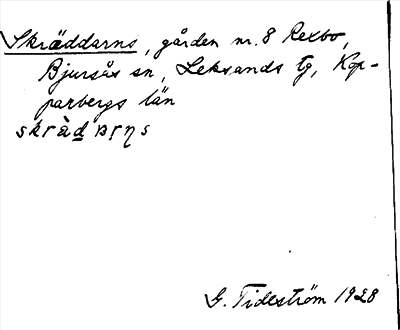 Skräddarns, gården nr. 8 Rexbo,
Bjursås sn, Leksands tg, Kop-
parbergs län
skràd ɒrn̥s
G. Tideström 1928